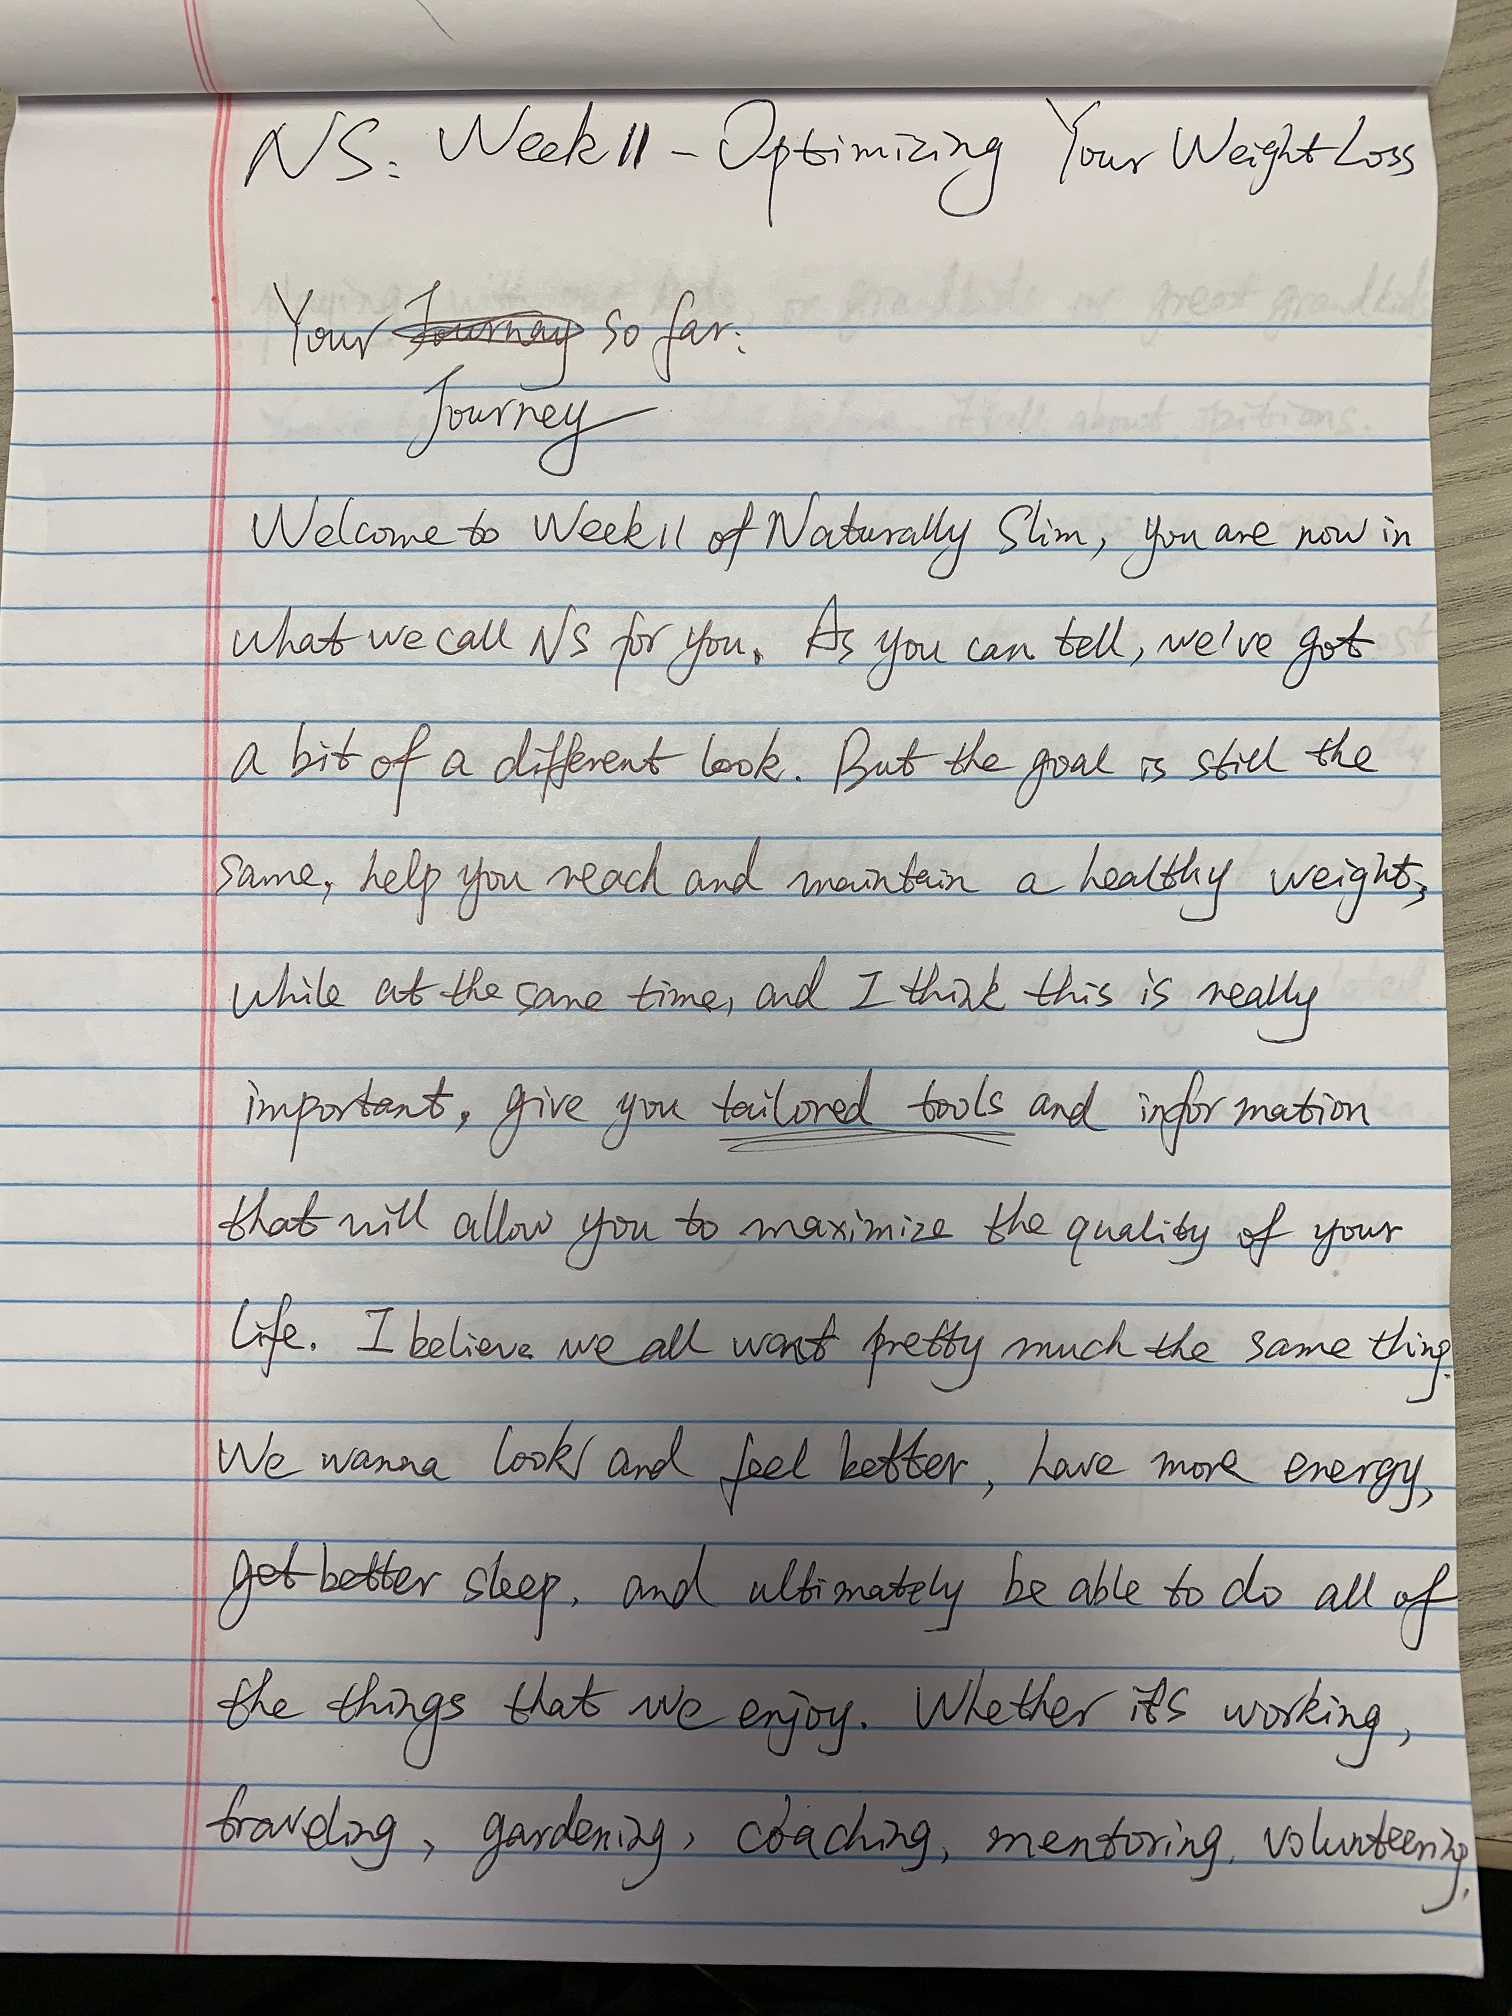 NS: Week 11 - Optimizing Your Weight Loss
Your Journay so far:
Journey
Welcome to Week 11 of Naturally Slim, you are now in
what we call NS for you. As you can tell, we've got
a bit of a different look. But the goal is still the
same, help you reach and maintain a healthy weight,
while at the same time, and I think this is really
important, give you tailored tools and information
that will allow you to maximize the quality of your
life. I believe we all want pretty much the same thing.
We wanna look and feel better, have more energy,
get better sleep, and ultimately be able to do all of
the things that we enjoy. Whether it's working,
traveling, gardening, coaching, mentoring, volunteering,